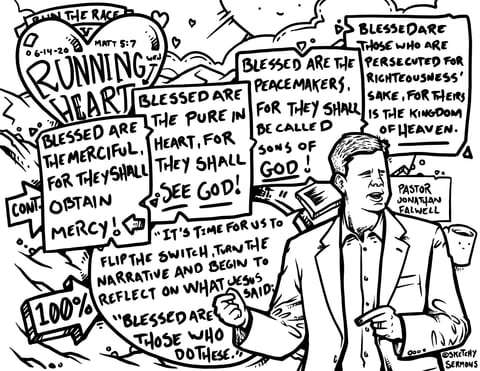 RUN THE RACE
6-14-20
MATT 5:7
RUNNING
HEART
BLESSED ARE
THE MERCIFUL,
FOR THEY SHALL
OBTAIN
MERCY!
BLESSED ARE
THE PURE IN
HEART, FOR
THEY SHALL
SEE GOD!
BLESSED ARE THE
PEACEMAKERS,
FOR THEY SHALL
BE CALLED
SONS OF
GOD!
BLESSED ARE
THOSE WHO ARE
PERSECUTED FOR
RIGHTEOUSNESS'
SAKE, FOR THEIRS
IS THE KINGDOM
OF HEAVEN.
PASTOR
JONATHAN
FALWELL
CONT
"IT'S TIME FOR US TO
FLIP THE SWITCH, TURN THE
NARRATIVE AND BEGIN TO
REFLECT ON WHAT JESUS
SAID:
"BLESSED ARE
THOSE WHO
DO THESE."
100%
©SKETCHY
SERMONS